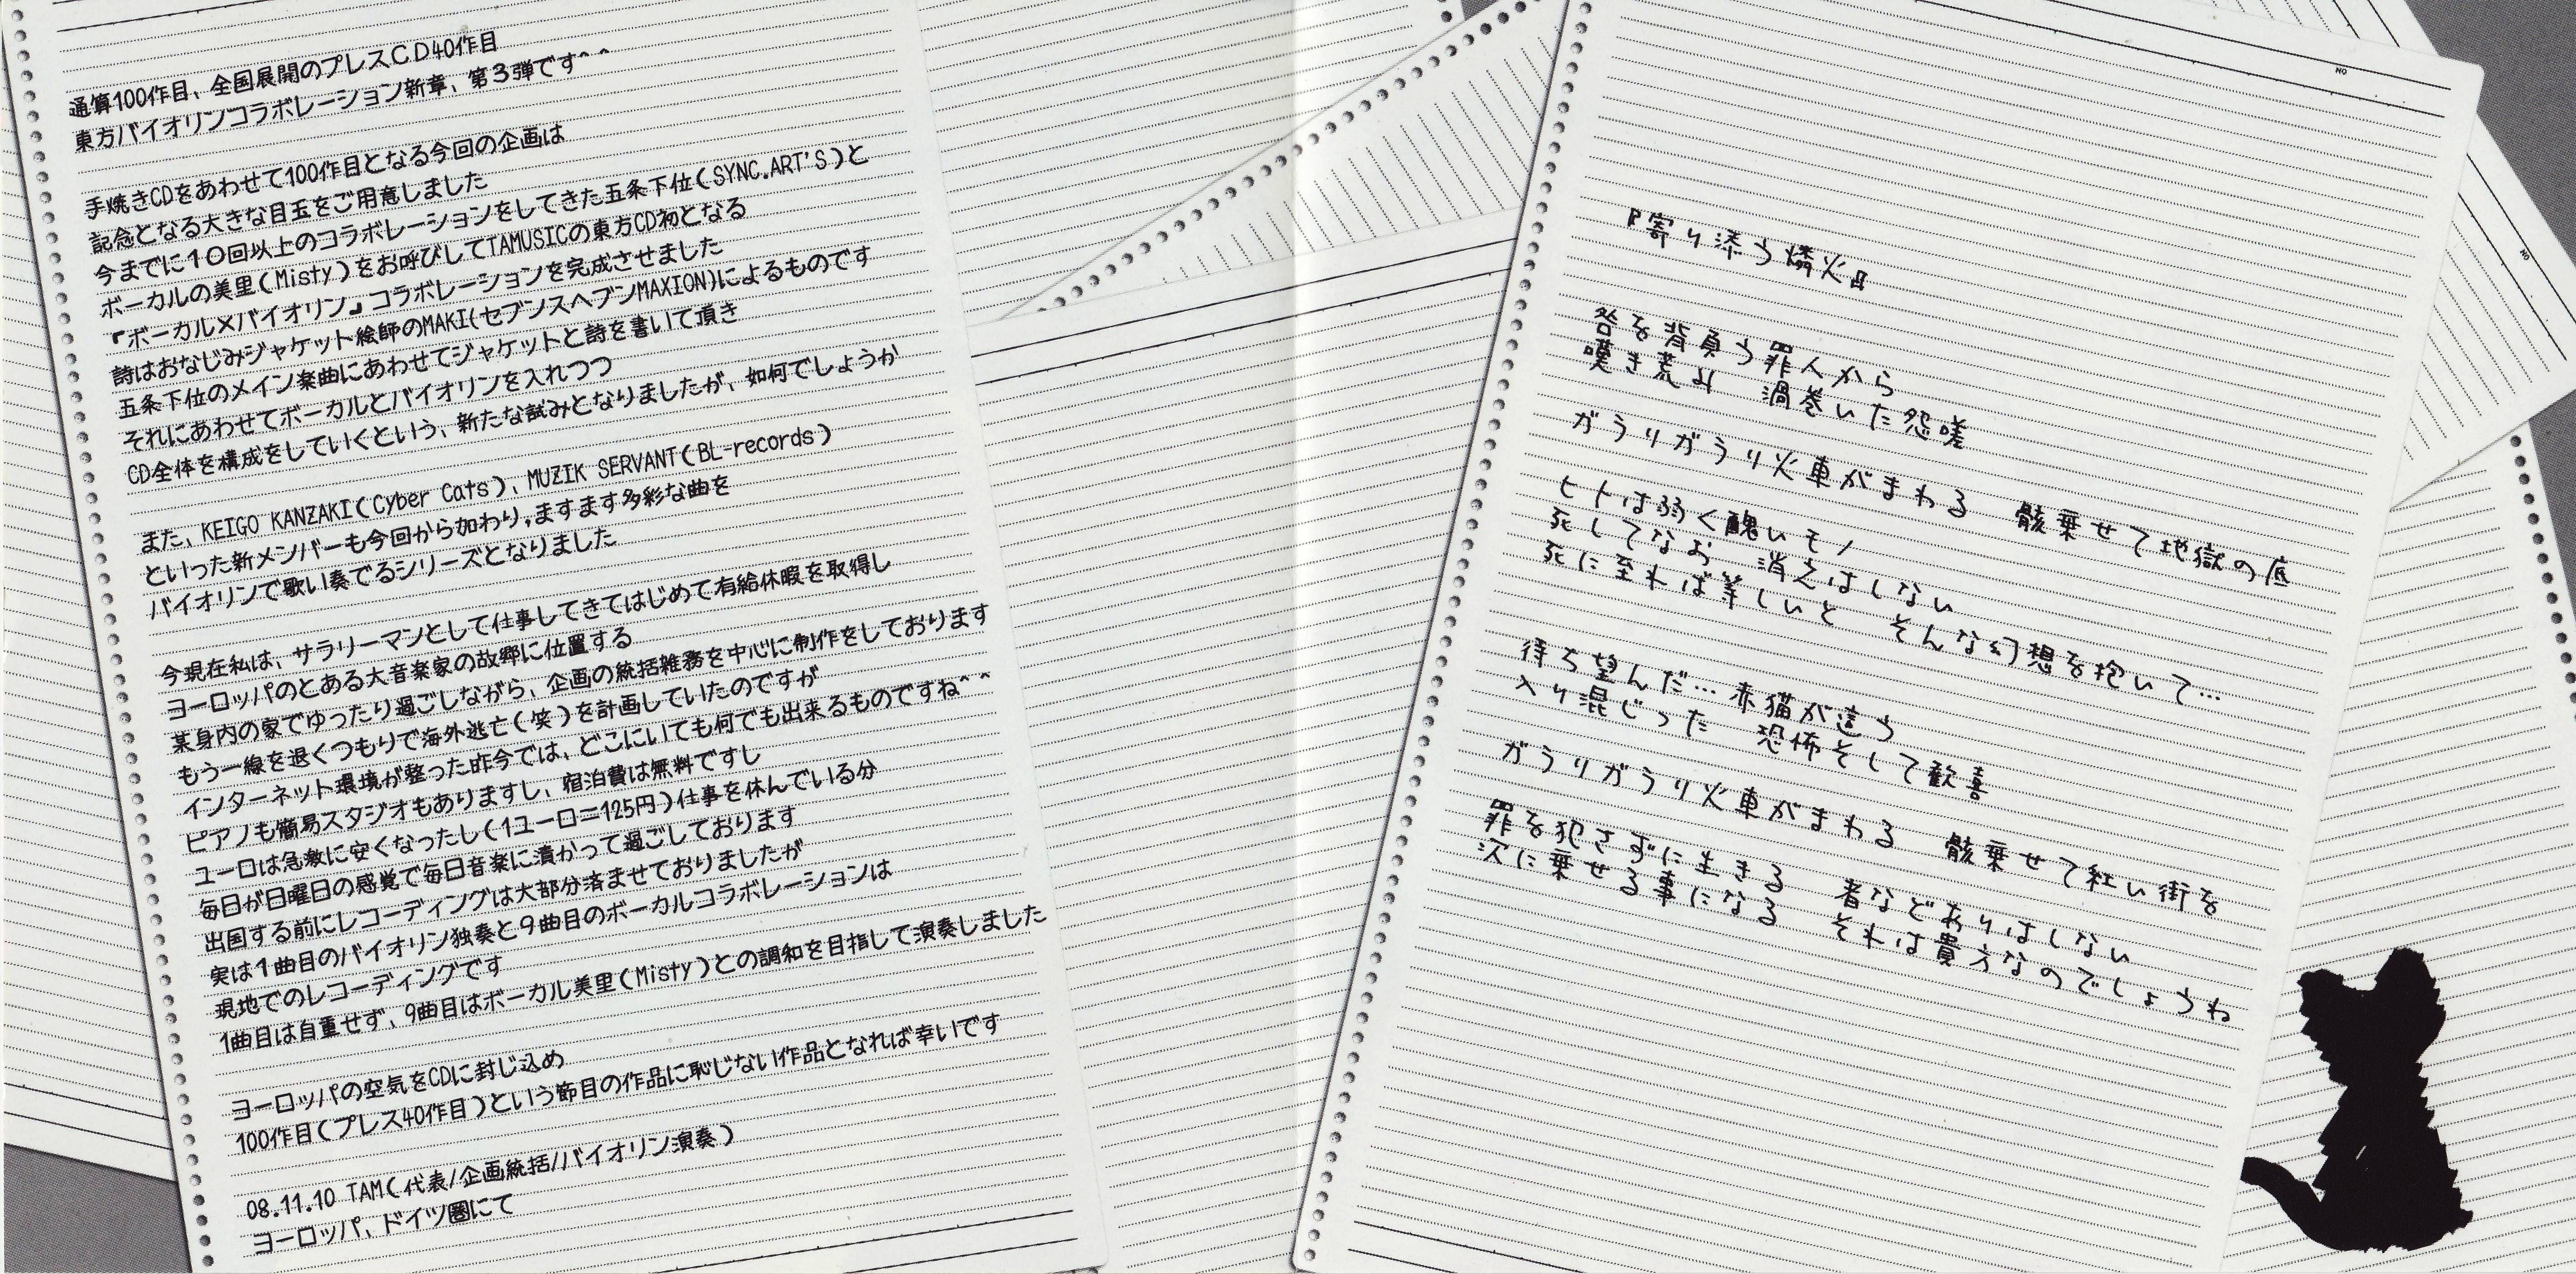 通算100作目、全国展開のプレスCD40作目
東方バイオリンコラボレーション新章、第3弾です^^
手焼きCDをあわせて100作目となる今回の企画は
記念となる大きな目玉をご用意しました
今までに10回以上のコラボレーションをしてきた五条下位(SYNC.ART'S)と
ボーカルの美里(Misty)をお呼びしてTAMUSICの東方CD初となる
『ボーカル×バイオリン』コラボレーションを完成させました
詩はおなじみジャケット絵師のMAKI(セブンスヘブンMAXION)によるものです
五条下位のメイン楽曲にあわせてジャケットと詩を書いて頂き
それにあわせてボーカルとバイオリンを入れつつ
CD全体を構成をしていくという、新たな試みとなりましたが、如何でしょうか
また、KEIGO KANZAKI(Cyber Cats)、MUZIK SERVANT(BL-records)
といった新メンバーも今回から加わり,ますます多彩な曲を
バイオリンで歌い奏でるシリーズとなりました
今現在私は、サラリーマンとして仕事してきてはじめて有給休暇を取得し
ヨーロッパのとある大音楽家の故郷に位置する
某身内の家でゆったり過ごしながら、企画の統括雑務を中心に制作をしております
もう一線を退くつもりで海外逃亡(笑)を計画していたのですが
インターネット環境が整った昨今では、どこにいても何でも出来るものですね^^
ピアノも簡易スタジオもありますし、宿泊費は無料ですし
ユーロは急激に安くなったし(1ユーロ=125円)仕事を休んでいる分
毎日が日曜日の感覚で毎日音楽に漬かって過ごしております
出国する前にレコーディングは大部分済ませておりましたが
実は1曲目のバイオリン独奏と9曲目のボーカルコラボレーションは
現地でのレコーディングです
1曲目は自重せず、9曲目はボーカル美里(Misty)との調和を目指して演奏しました
ヨーロッパの空気をCDに封じ込め
100作目(プレス40作目)という節目の作品に恥じない作品となれば幸いです
08.11.10 TAM(代表/企画統括/バイオリン演奏)
ヨーロッパ、ドイツ圏にて
『寄り添う燐火』
咎を背負う罪人から
嘆き荒み 渦巻いた怨嗟
ガラリガラリ火車がまわる 骸乗せて地獄の底
ヒトは弱く醜いモノ
死してなお 消えはしない
死に至れば等しいと そんな幻想を抱いて…
待ち望んだ…赤猫が這う
入り混じった 恐怖そして歓喜
ガラリガラリ火車がまわる 骸乗せて紅い街を
罪を犯さずに生きる 者などありはしない
次に乗せる事になる それは貴方なのでしょうね
NO
NO